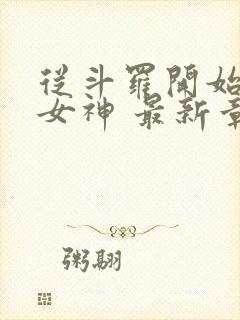 從斗羅開始
女神 最新章
粥翮